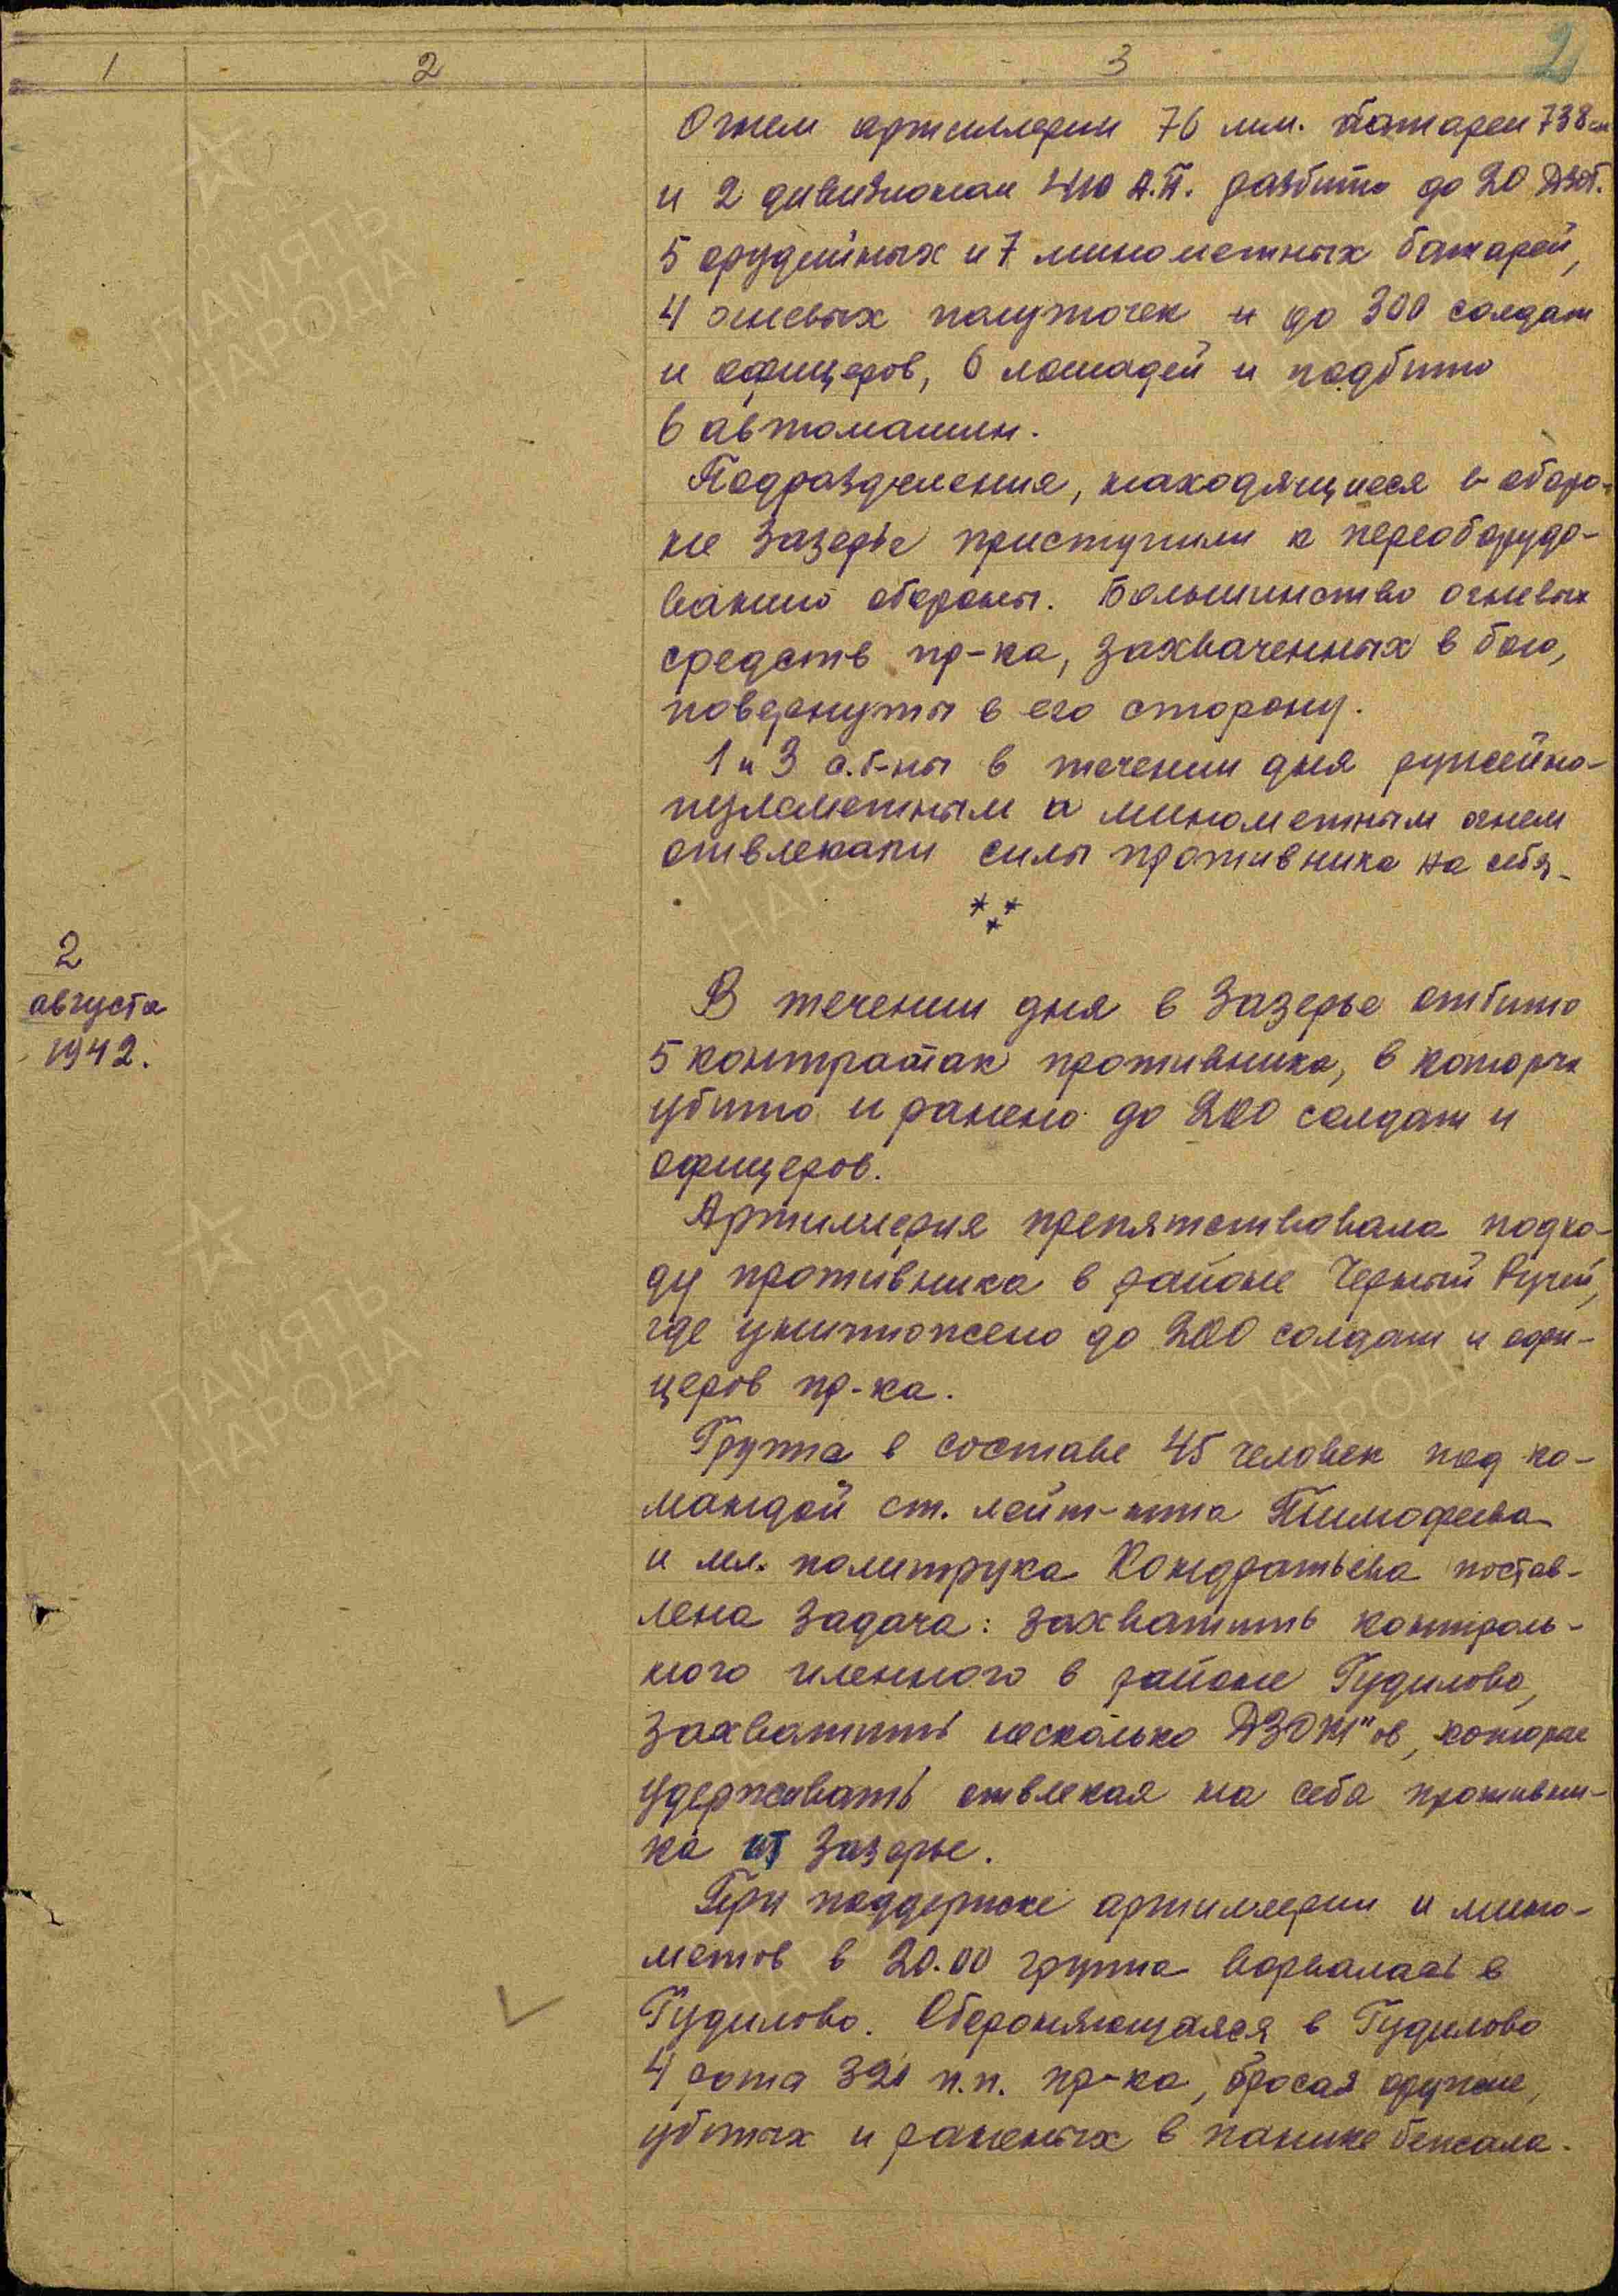 1 2 3 2
Огнем артиллерии 76 мм. батареи 738 сп
и 2 дивизионом 410 А.П. разбито до 20 Дзот.
5 орудийных и 7 минометных батарей,
4 огневых полуточек и до 300 солдат
и офицеров, 6 лошадей и подбито
6 автомашин.
Подразделения, находящиеся в оборо-
не Зазерье приступили к переоборудо-
ванию обороны. Большинство огневых
средств пр-ка, захваченных в бою,
повернуты в его сторону.
1 и 3 с.б-ны в течении дня ружейно-
пулеметным и минометным огнем
отвлекали силы противника на себя.
***
2
августа
1942.
В течении дня в Зазерье отбито
5 контратак противника, в которых
убито и ранено до 200 солдат и
офицеров.
Артиллерия препятствовала подхо-
ду противника в районе Черный Ручей,
где уничтожено до 200 солдат и офи-
церов пр-ка.
Группа в составе 45 человек под ко-
мандой ст. лейт-нта Тимофеева
и мл. политрука Кондратьева постав-
лена задача: захватить контроль-
ного пленного в районе Гудилово,
захватить несколько ДЗОТ"ов, которые
удерживать отвлекая на себя противни-
ка от Зазерье.
При поддержке артиллерии и мино-
метов в 20.00 группа ворвалась в
Гудилово. Обороняющаяся в Гудилово
4 рота 321 п.п. пр-ка, бросая оружие,
убитых и раненых в панике бежала.
ПАМЯТЬ
НАРОДА
ПАМЯТЬ
НАРОДА